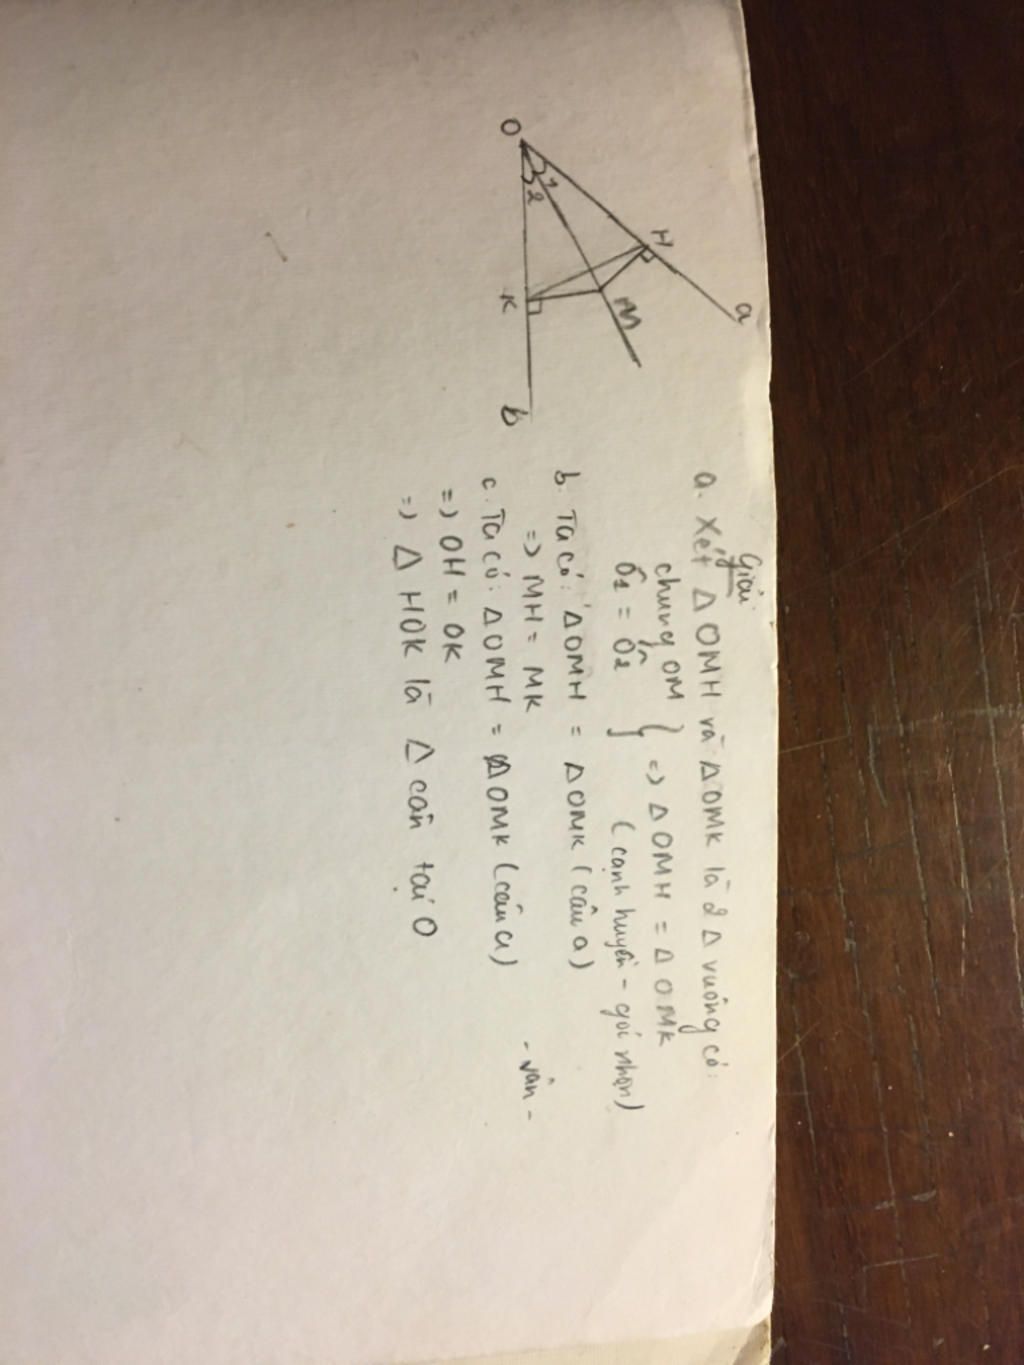 O
1
2
H
a
M
K
b
Giải:
a. Xét ΔOMH và ΔOMK là 2 Δ vuông có:
chung OM } => ΔOMH = ΔOMK
Ô1 = Ô2 (cạnh huyền - gói nhọn)
b. Ta có: ΔOMH = ΔOMK (câu a)
=> MH = MK
c. Ta có: ΔOMH = ΔOMK (câu a)
=> OH = OK
=> Δ HOK là Δ cân tại O
- vân -